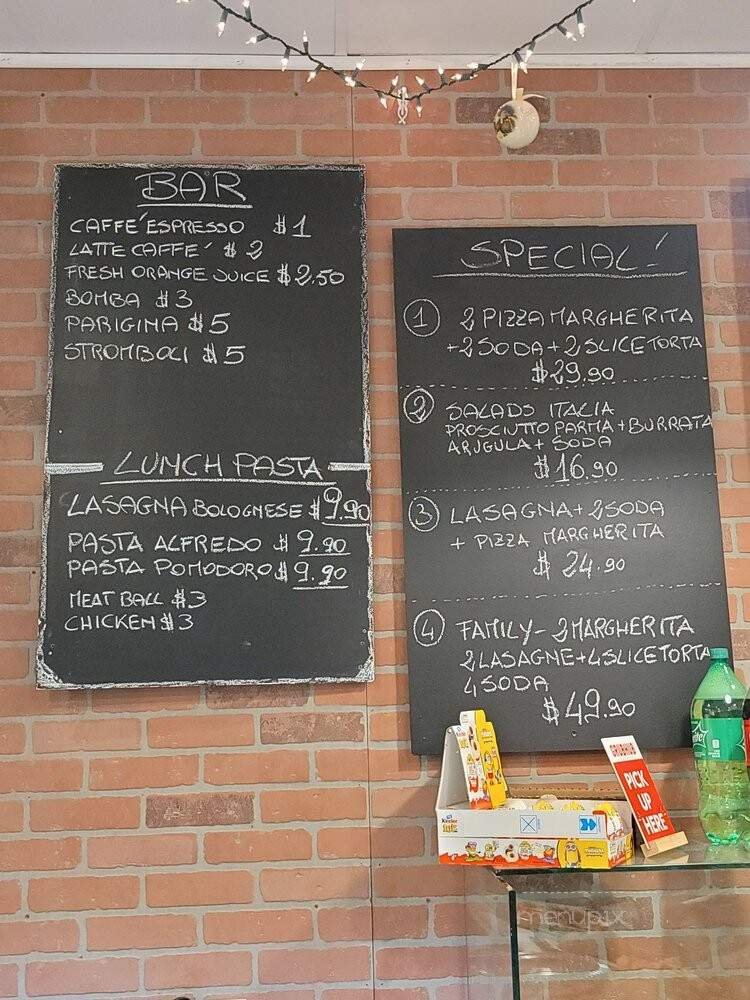 BAR
CAFFE' ESPRESSO $1
LATTE CAFFE' $2
FRESH ORANGE JUICE $2.50
BOMBA $3
PARIGINA $5
STROMBOLI $5
LUNCH PASTA
LASAGNA BOLOGNESE $9.90
PASTA ALFREDO $9.90
PASTA POMODORO $9.90
MEAT BALL $3
CHICKEN $3
SPECIAL!
1 2 PIZZA MARGHERITA
+2 SODA + 2 SLICE TORTA
$29.90
2 SALADS ITALIA
PROSCIUTTO PARMA + BURRATA
ARUGULA + SODA
$16.90
3 LASAGNA + 2 SODA
+ PIZZA MARGHERITA
$24.90
4 FAMILY - 2 MARGHERITA
2 LASAGNE + 4 SLICE TORTA
4 SODA
$49.90
GRUBHUB
PICK
UP
HERE
Kinder
menupix